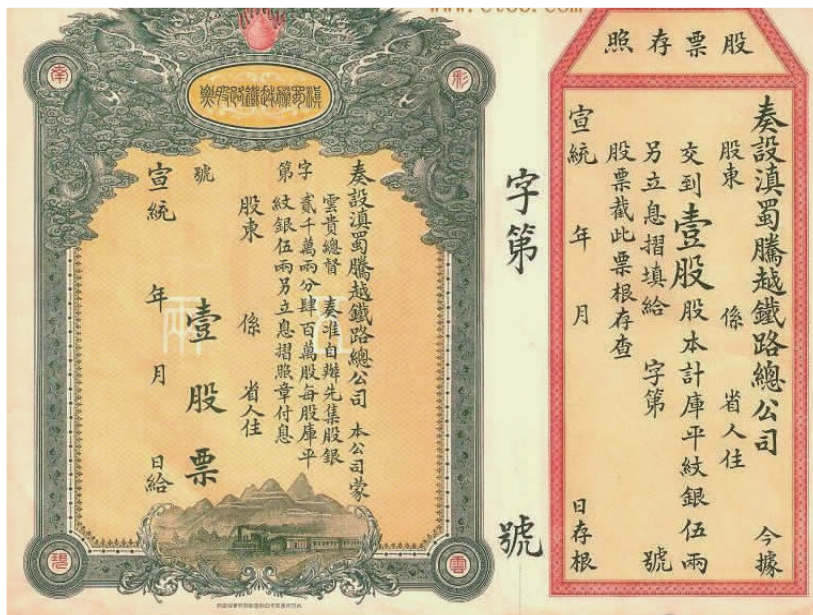 股票存照
奏設滇蜀騰越鐵路總公司 今據
股東 係 省人住
交到壹股股本計庫平紋銀伍兩
另立息摺填給 字第 號
股票截此票根存查
宣統 年 月 日存根
字第 號
彩
南
雲
碧
滇蜀騰越鐵路股票
字 第 號
奏設滇蜀騰越鐵路總公司 本公司蒙
雲貴總督 奏准自辦先集股銀
貳千萬兩分肆百萬股每股庫平
紋銀伍兩另立息摺照章付息
股東 係 省人住
壹股票
宣統 年 月 日給
伍兩